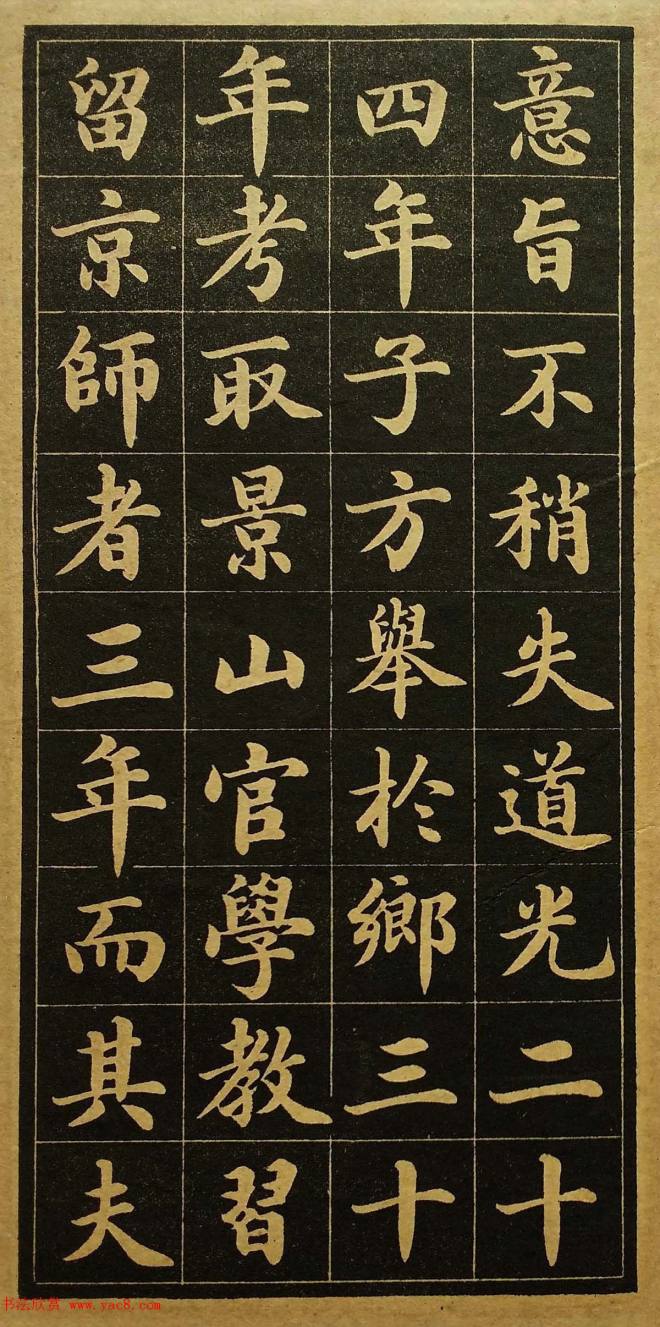 意旨不稍失道光二十
四年子方舉於鄉三十
年考取景山官學教習
留京師者三年而其夫
书法欣赏 www.yac8.com